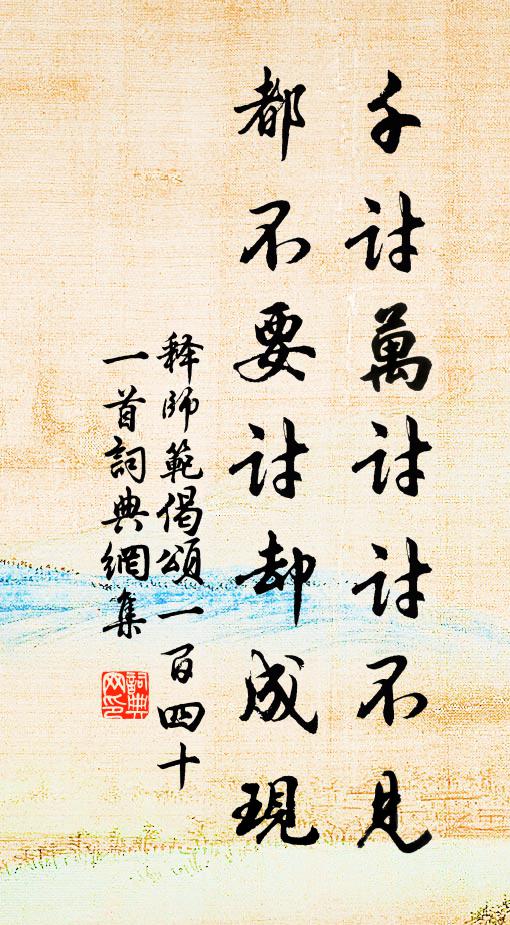 千討萬討討不見
都不要討却成現
释師範偈頌一百四十
一首詞典網集
詞典网印